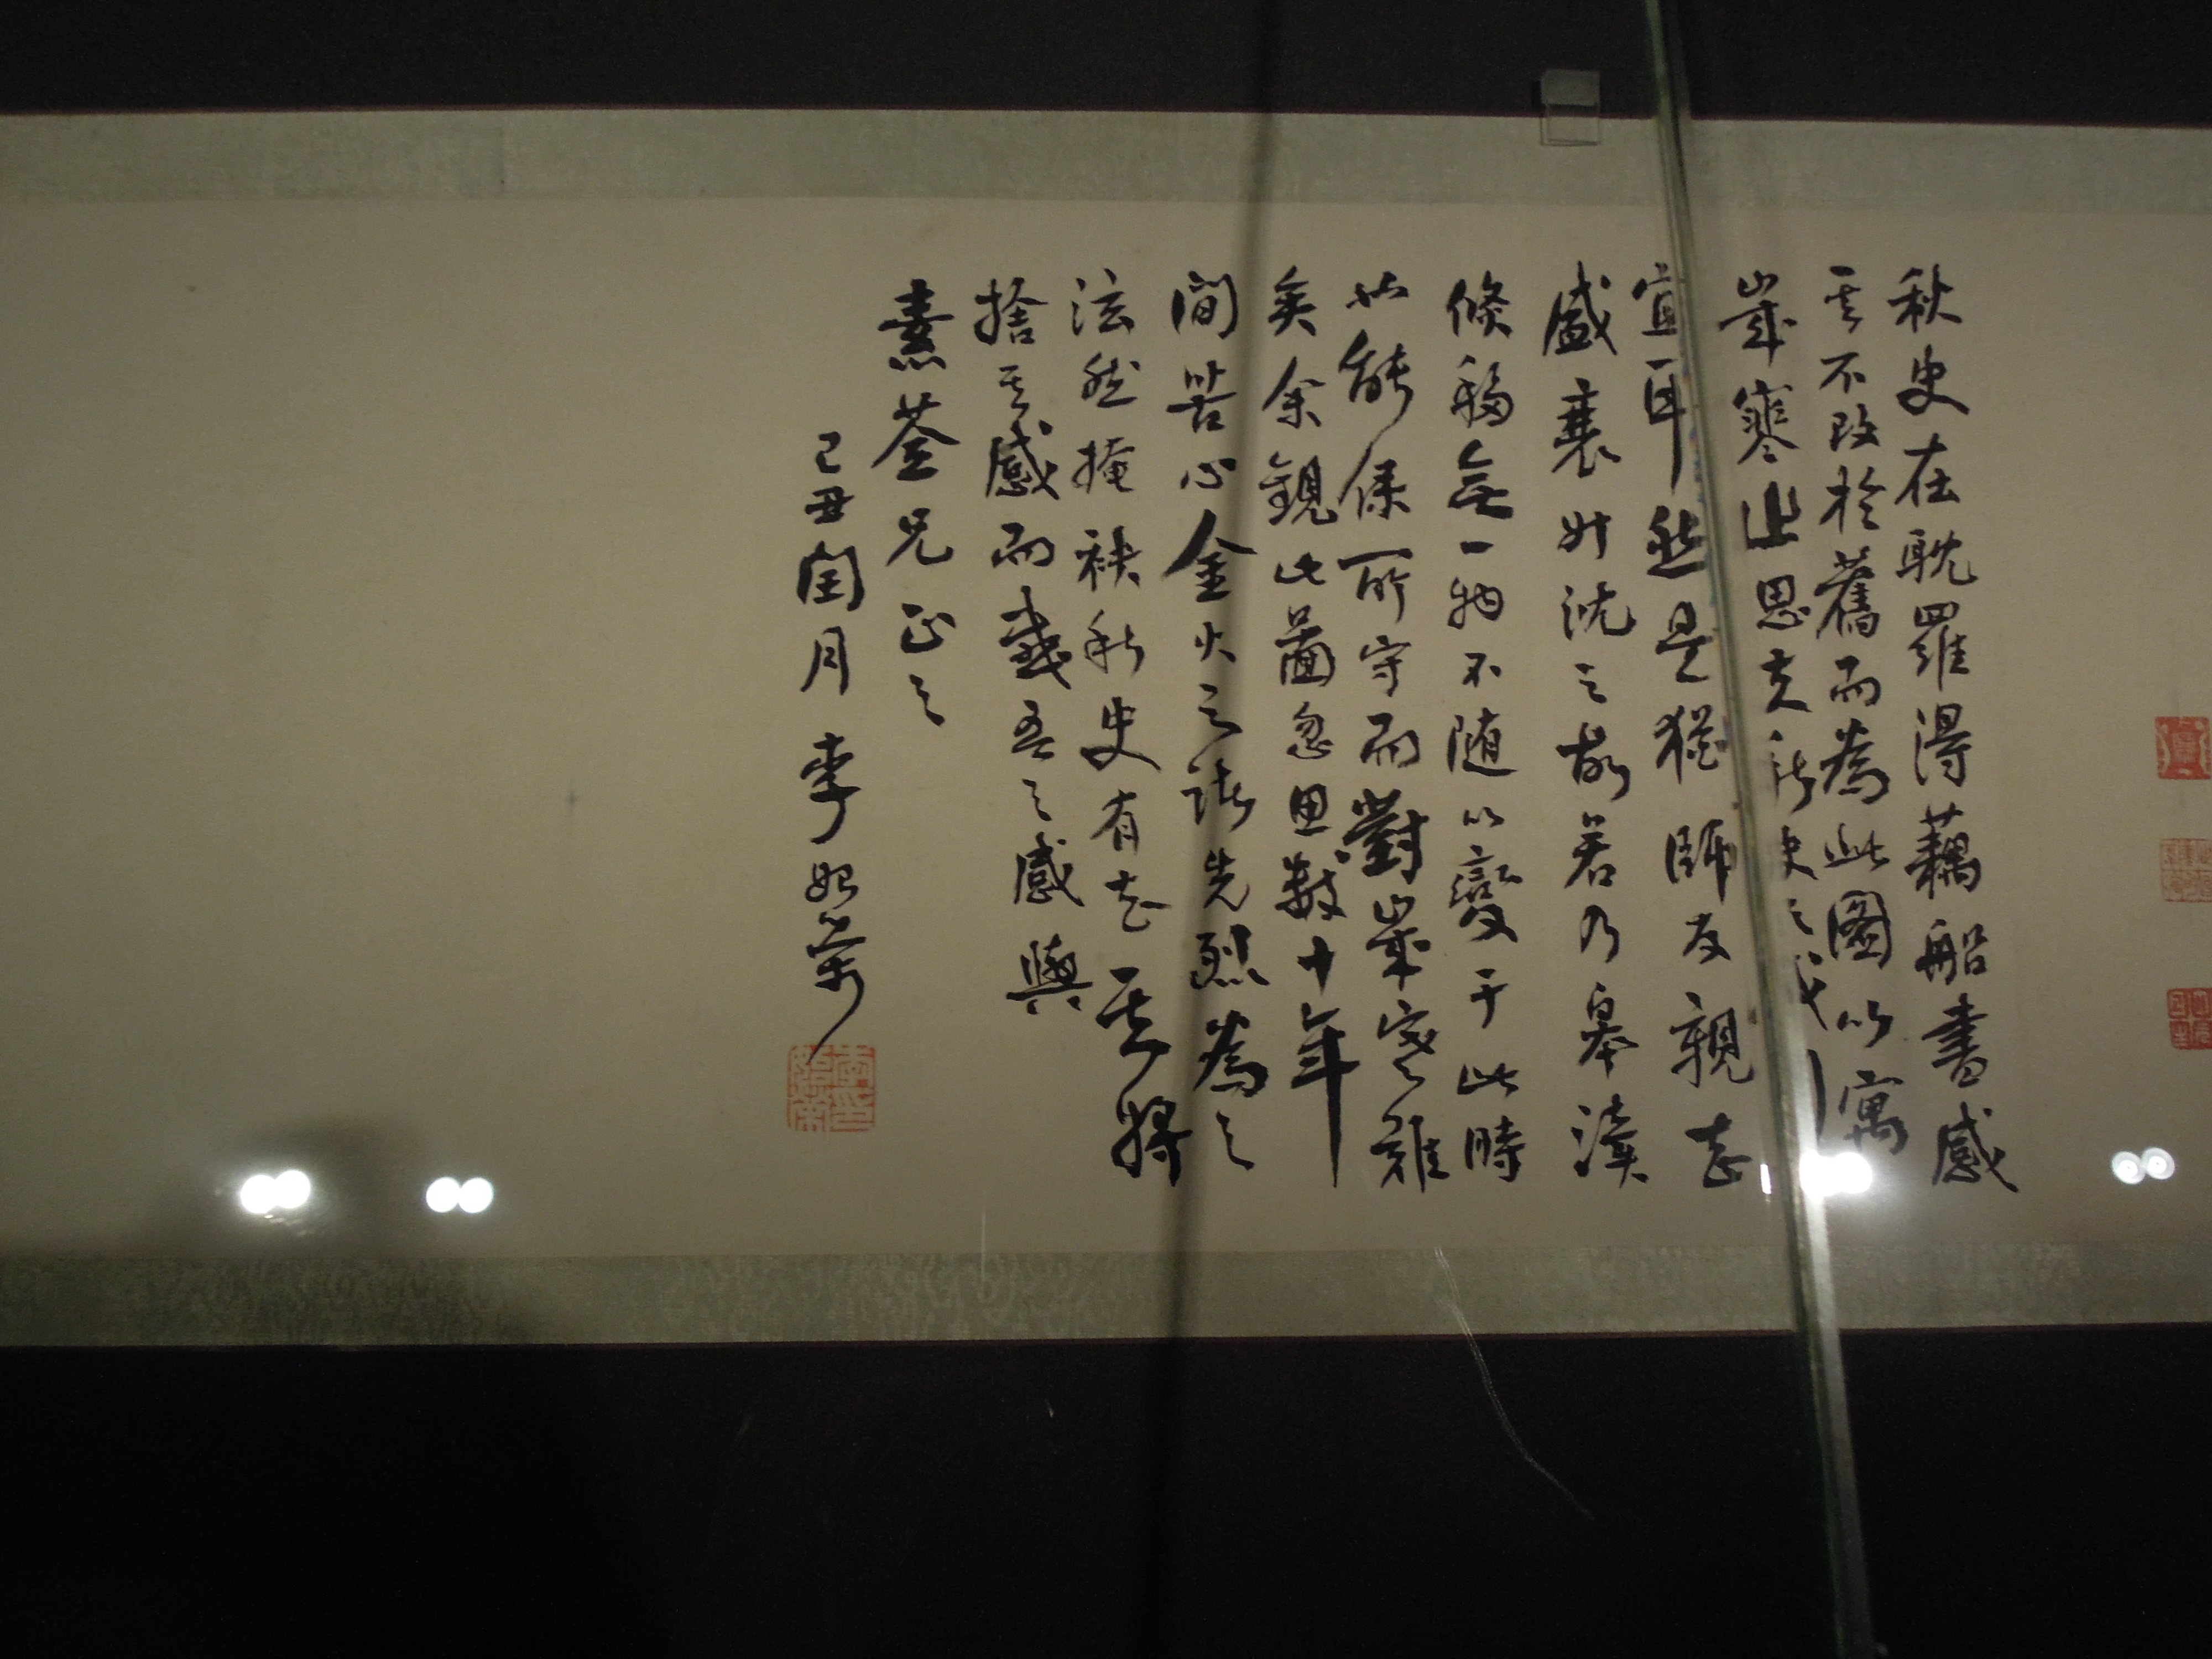 秋史在耽羅得藕船書感
其不改於舊而為此圖以寓
歲寒之思夫秋史之
宜耳然是猶師友親志
盛衰升沈之故若乃皋瀆
倏移無一物不隨以變于此時
能保所守而對歲寒難
矣余觀此圖忽思數十年
間苦心金火之諸先烈為之
泫然掩袂秋史有志其將
捨其感而感吾之感與
素荃兄正之
己丑閏月 李始榮